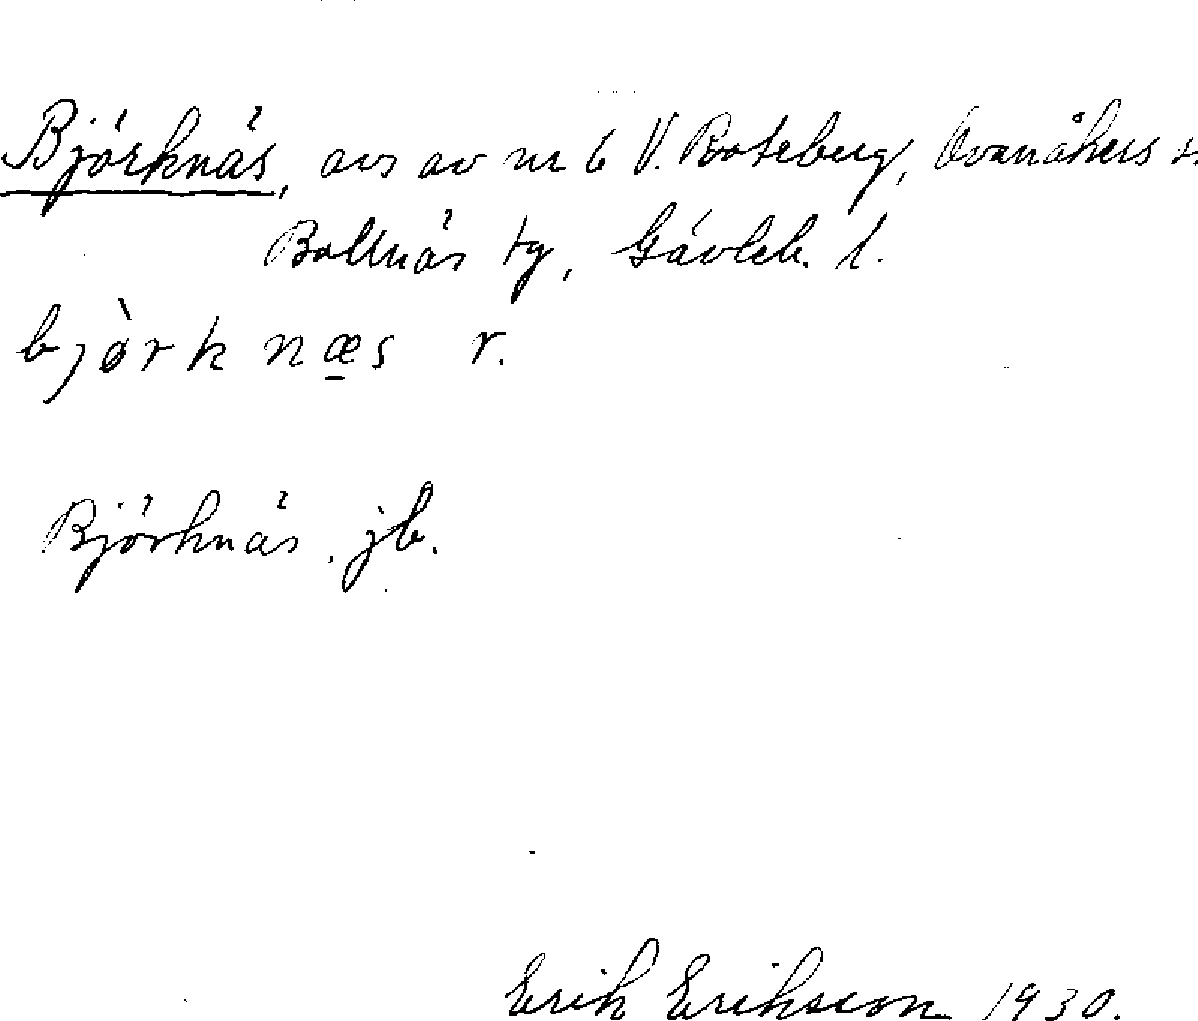 Björknäs, avs av nr 6 V. Roteberg, Ovanåkers s.
Bollnäs tg, Gävleb. l.
bjòrknæs r.
Björknäs, jb.
Erik Eriksson 1930.